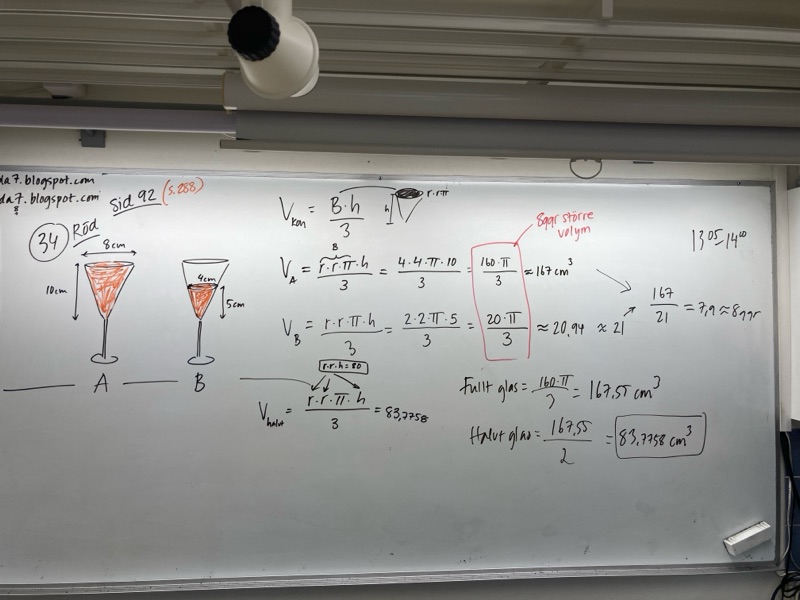 da7.blogspot.com
da7.blogspot.com
8
sid 92 (s.288)
34 Röd
8cm
10cm
4cm
5cm
A
B
V kon = B·h / 3
h
r·r·π
8ggr större
volym
13 05-14 00
B
V A = r·r·π·h / 3 = 4·4·π·10 / 3 = 160·π / 3 ≈ 167 cm³
V B = r·r·π·h / 3 = 2·2·π·5 / 3 = 20·π / 3 ≈ 20,94 ≈ 21
167 / 21 = 7,9 ≈ 8ggr
r·r·h=80
V halvt = r·r·π·h / 3 = 83,7758
Fullt glas = 160·π / 3 = 167,55 cm³
Halvt glas = 167,55 / 2 = 83,7758 cm³